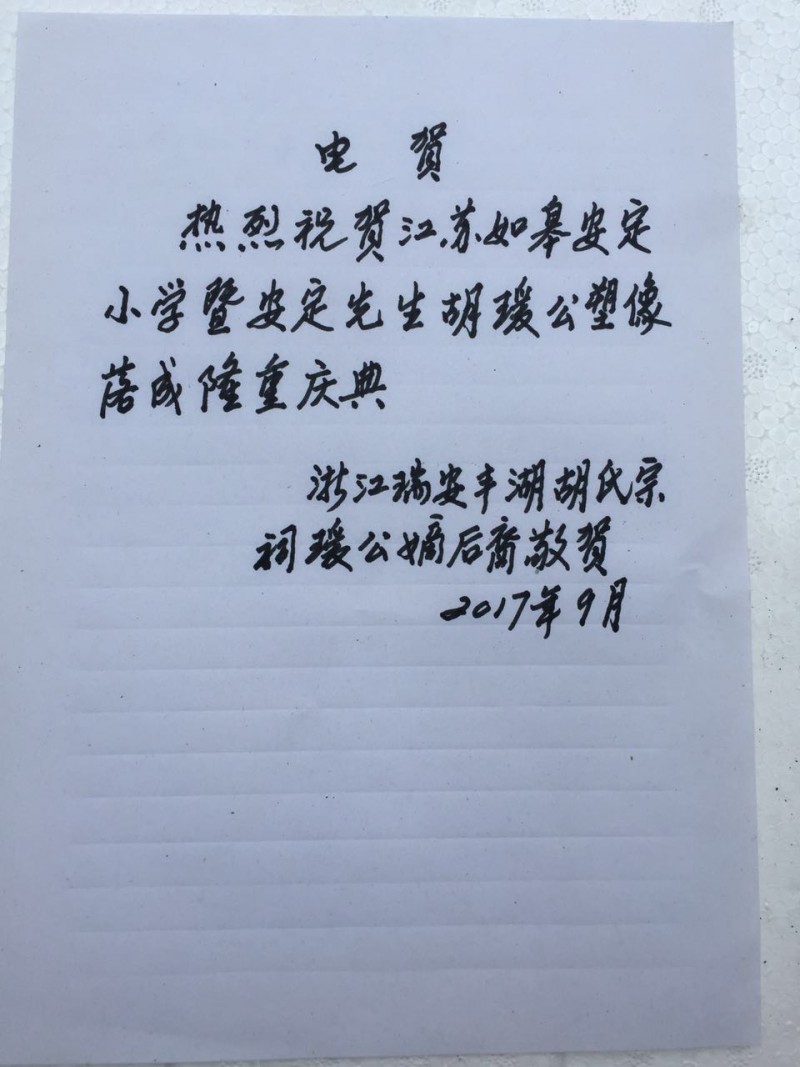 电 贺
热烈祝贺江苏如皋安定
小学暨安定先生胡瑗公塑像
落成隆重庆典
浙江瑞安丰湖胡氏宗
祠瑗公嫡后裔敬贺
2017年9月